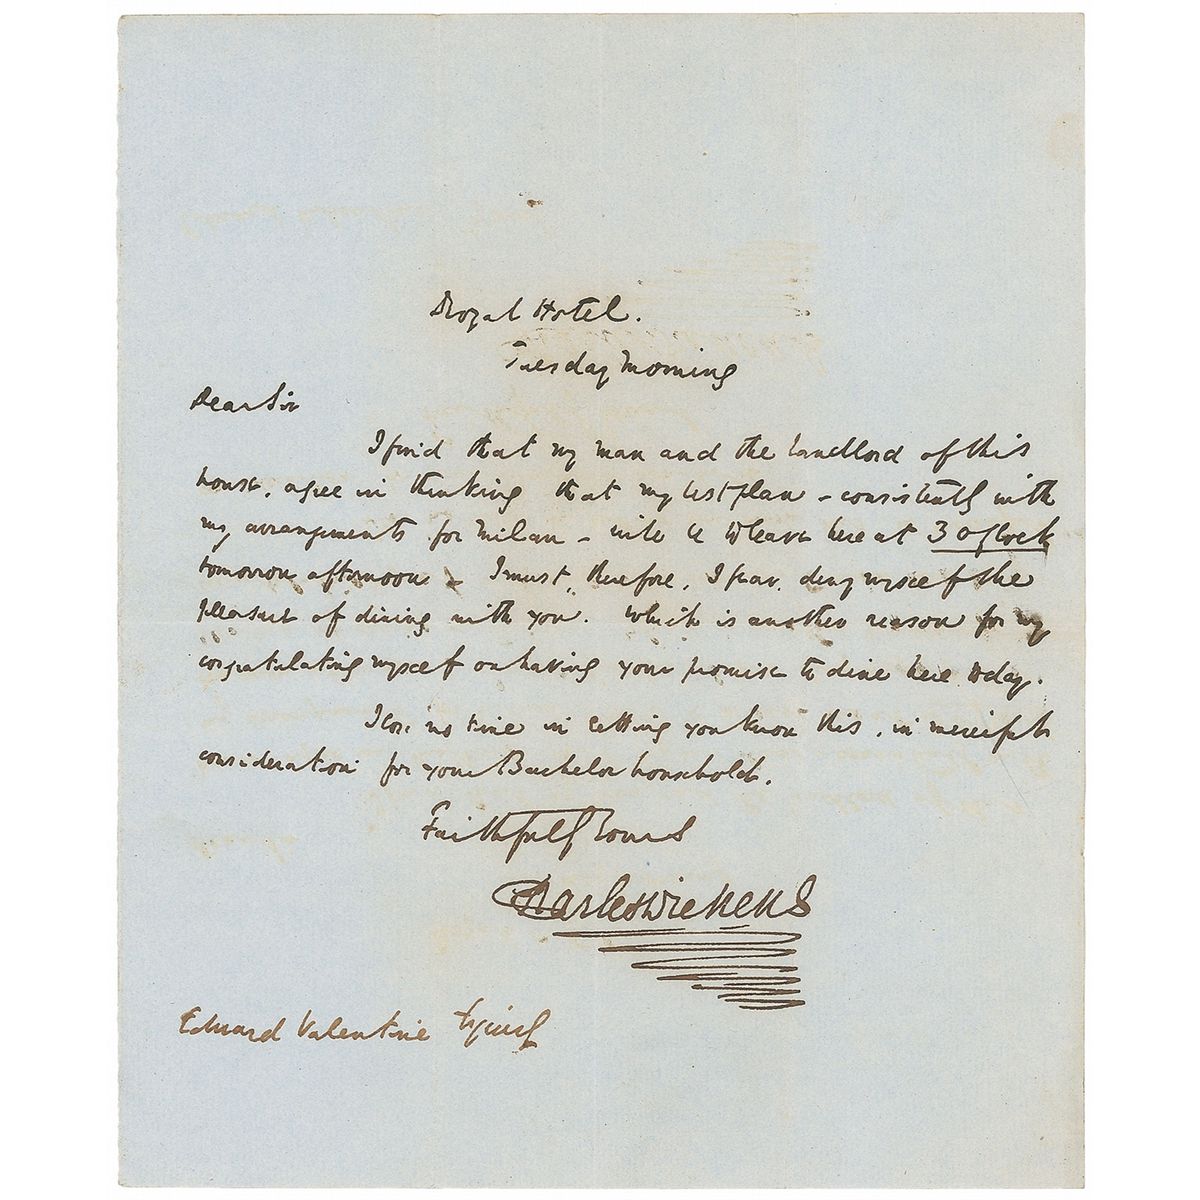 Royal Hotel.
Tuesday Morning
Dear Sir
I find that my man and the landlord of this
house, agree in thinking that my best plan – consistently with
my arrangements for Milan – will be to leave here at 3 o'Clock
tomorrow afternoon – I must, therefore, I fear, deny myself the
pleasure of dining with you. Which is another reason for my
congratulating myself on having your promise to dine here today.
I lose no time in letting you know this, in merciful
consideration for your Bachelor household.
Faithfully Yours
Charles Dickens
Edward Valentine Esquire